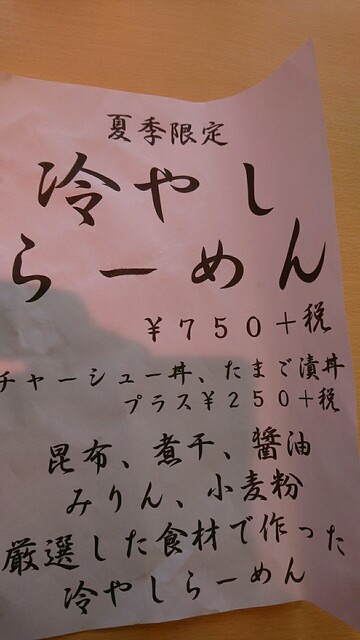 夏季限定
冷やし
らーめん
￥７５０＋税
チャーシュー丼、たまご漬丼
プラス￥２５０＋税
昆布、煮干、醤油
みりん、小麦粉
厳選した食材で作った
冷やしらーめん